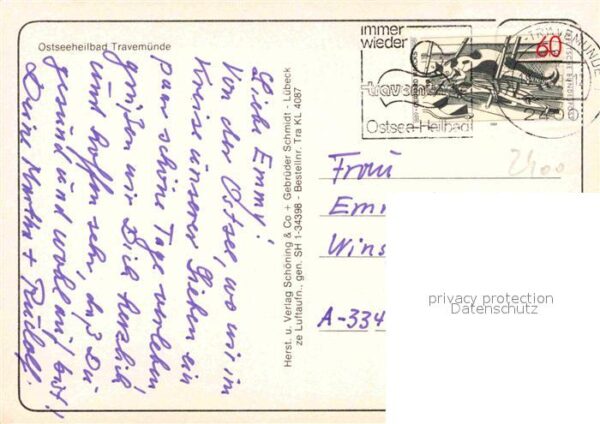 Ostseeheilbad Travemünde
Liebe Emmy!
Von der Ostsee, wo wir im
Kreise unserer Lieben ein
paar schöne Tage verleben,
grüßen wir Dich herzlich
und hoffen sehr, daß Du
gesund und wohlauf bist!
Deine Martha + Rudolf.
Herst. u. Verlag Schöning & Co + Gebrüder Schmidt - Lübeck
ze Luftaufn., gen. SH 1-34398 - Bestellnr. Tra KL 4087
immer
wieder
travemünde
Ostsee-Heilbad
60
TRAVEMÜNDE
2400
Frau
Em
Wins
A-334
privacy protection
Datenschutz